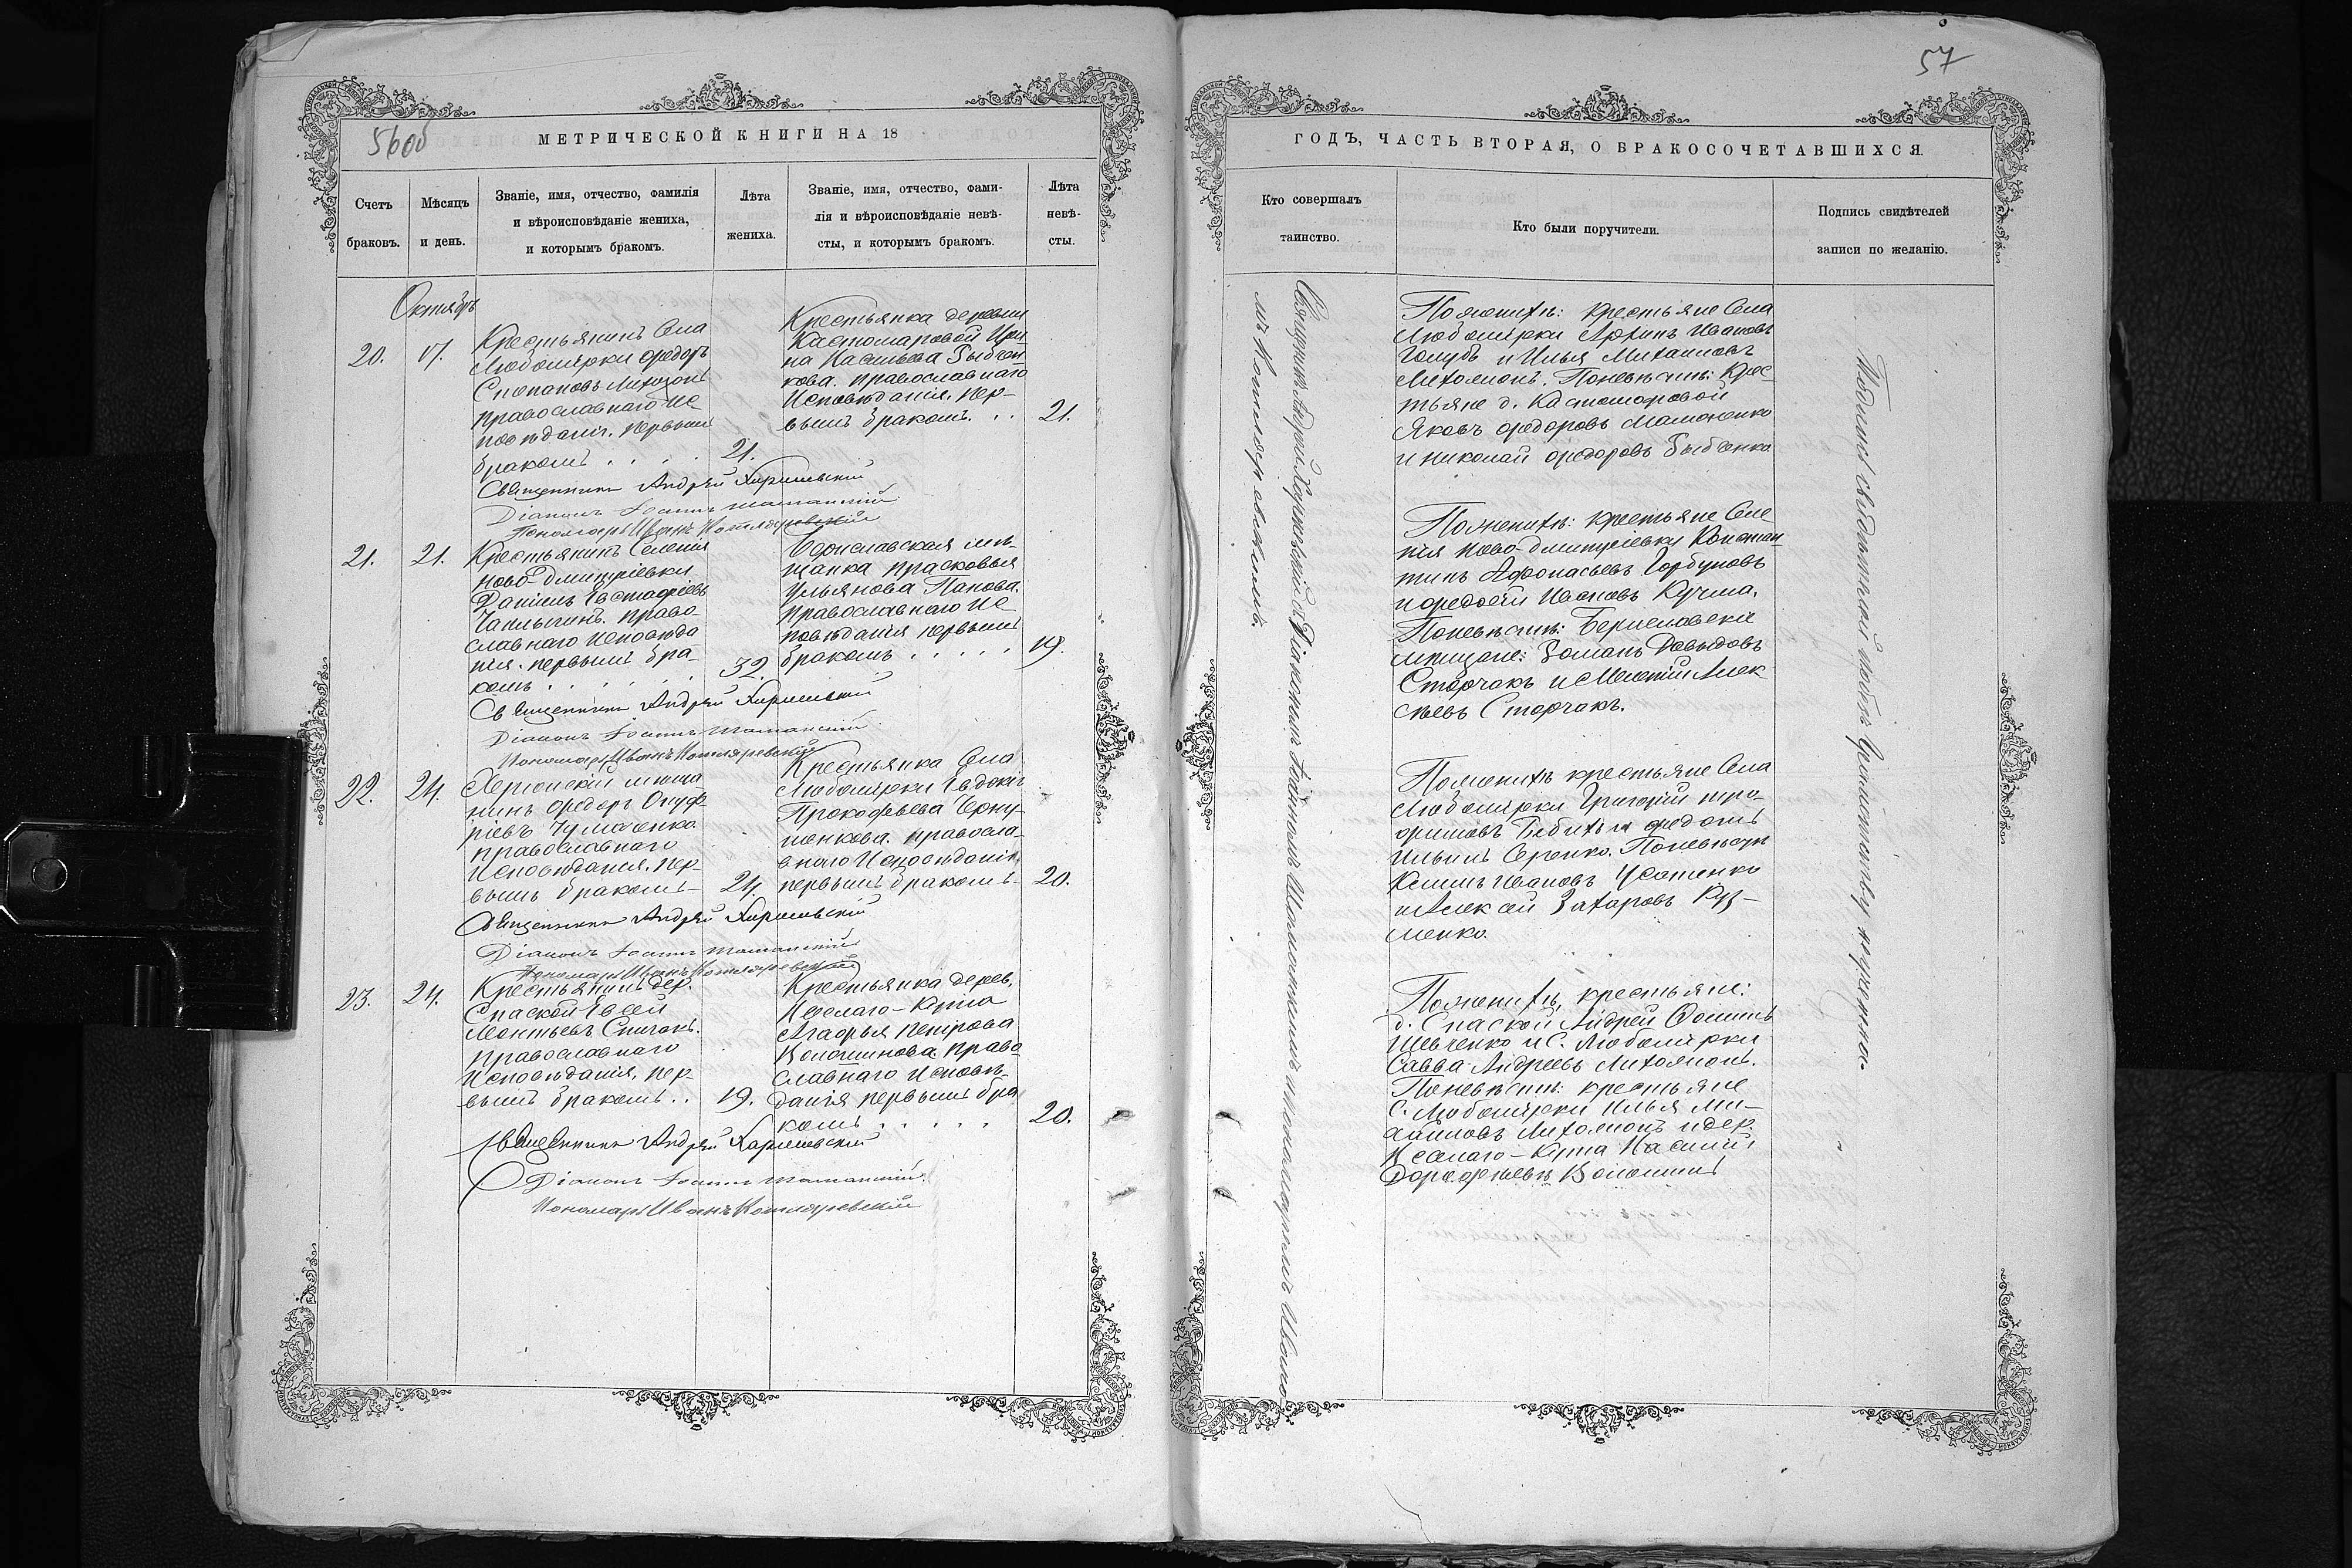 56об
МЕТРИЧЕСКОЙ КНИГИ НА 18
Счетъ
браковъ.
Мѣсяцъ
и день.
Званіе, имя, отчество, фамилія
и вѣроисповѣданіе жениха,
и которымъ бракомъ.
Лѣта
жениха.
Званіе, имя, отчество, фами-
лія и вѣроисповѣданіе невѣ-
сты, и которымъ бракомъ.
Лѣта
невѣ-
сты.
Октябрь
20.
17.
Крестьянинъ Села
Любомирки Ѳедоръ
Степановъ
православнаго Ис
повѣданія. первымъ
бракомъ . . . .
21.
Крестьянка деревни
Кастомаровой Ири
на Васильева Рыбчен
кова. православнаго
Исповѣданія. пер-
вымъ бракомъ. . .
21.
Священникъ Андрей
Діаконъ Іоаннъ Шаманскій
Пономарь Иванъ Котляревскій
21.
21.
Крестьянинъ Селенія
Ново Дмитріевки
Даніилъ Евстафіевъ
Чаплыгинъ. право-
славнаго исповѣда
нія. первымъ бра-
комъ . . . . . .
32.
Бериславская мѣ-
щанка Прасковья
Ульянова Панова.
православнаго ис
повѣданія первымъ
бракомъ . . . . .
19.
Священникъ Андрей
Діаконъ Іоаннъ Шаманскій
Пономарь Иванъ Котляревскій
22.
24.
Херсонскій мѣща
нинъ Ѳедоръ Онуф
ріевъ Чумаченко
православнаго
Исповѣданія. пер-
вымъ бракомъ-
24.
Крестьянка Села
Любомирки Евдокія
Прокофьева
православ
внаго Исповѣданія
первымъ бракомъ-
20.
Священникъ Андрей
Діаконъ Іоаннъ Шаманскій
Пономарь Иванъ Котляревскій
23.
24.
Крестьянинъ дер.
Спаской Евсей
Леонтьевъ Спичакъ.
православнаго
Исповѣданія, пер-
вымъ бракомъ. .
19.
Крестьянка дерев.
Веселаго-Кута
Агафья Петрова
Волошинова. право
славнаго Исповѣ-
данія первымъ бра
комъ . . . . .
20.
Священникъ Андрей
Діаконъ Іоаннъ Шаманскій.
Пономарь Иванъ Котляревскій
57
ГОДЪ, ЧАСТЬ ВТОРАЯ, О БРАКОСОЧЕТАВШИХСЯ.
Кто совершалъ
таинство.
Кто были поручители.
Подпись свидѣтелей
записи по желанію.
Священникъ Андрей съ Діакономъ Іоанномъ Шаманскимъ и пономаремъ Ивано
мъ Котляревскимъ.
По женихѣ: крестьяне Села
Любомирки Архипъ Ивановъ
Голубъ и Илья Михайловъ
По невѣстѣ: Крес-
тьяне д. Кастомаровой
Яковъ Ѳедоровъ
и Николай Ѳедоровъ Рыбченко
По женихѣ: крестьяне Селе
нія Ново-Дмитріевки Констан
тинъ Афонасьевъ Горбуновъ
и Ѳедосій Ивановъ Кучма.
По невѣстѣ: Бериславскіе
мѣщане: Романъ Давыдовъ
Старчакъ и Мелетій Алек
сѣевъ Старчакъ.
По женихѣ крестьяне Села
Любомирки Григорій Тро-
фимовъ и Ѳедотъ
Ильинъ Серенко. По невѣстѣ
Климъ Ивановъ Усатенко
и Алексѣй Захаровъ Куз-
менко.
По женихѣ, крестьяне:
д. Спаской Андрей Фоминъ
Шевченко и С. Любомирки
Савва Андреевъ
По невѣстѣ: крестьяне
С. Любомирки Илья Ми-
хайловъ и дер.
Веселаго-Кута Василій
Дорофѣевъ Волошинъ